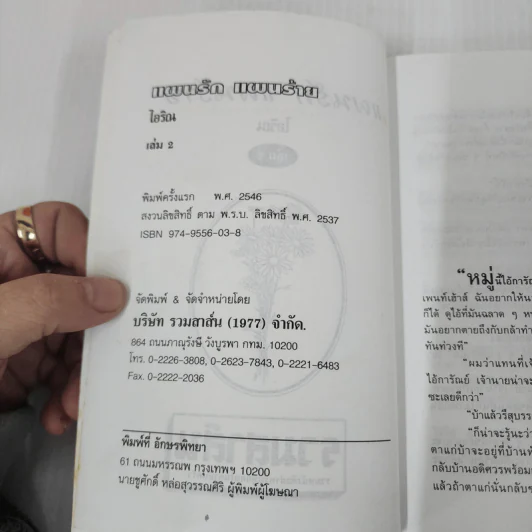 แผนรัก แผนร้าย
ไอริณ
เล่ม 2
พิมพ์ครั้งแรก พ.ศ. 2546
สงวนลิขสิทธิ์ ตาม พ.ร.บ. ลิขสิทธิ์ พ.ศ. 2537
ISBN 974-9556-03-8
จัดพิมพ์ & จัดจำหน่ายโดย
บริษัท รวมสาส์น (1977) จำกัด.
864 ถนนภาณุรังษี วังบูรพา กทม. 10200
โทร. 0-2226-3808, 0-2623-7843, 0-2221-6483
Fax. 0-2222-2036
พิมพ์ที่ อักษรพิทยา
61 ถนนมหรรณพ กรุงเทพฯ 10200
นายชูศักดิ์ หล่อสุวรรณศิริ ผู้พิมพ์ผู้โฆษณา
"หมู่นี้ไอ้การัณ
เพนท์เฮ้าส์ ฉันอยากให้น
ก็ได้ ดูไอ้ที่มันฉลาด ๆ ห
มันอยากตายถึงกับกล้าท
ทันท่วงที"
"ผมว่าแทนที่เจ้
ไอ้การัณย์ เจ้านายน่าจะ
ซะเลยดีกว่า"
"บ้าแล้วรึสุบรร
"ก็น่าจะรู้นะว่า
ตาแก่บ้าจะอยู่ที่บ้านห
กลับบ้านอดิศวรพร้อม
แล้วถ้าตาแก่นั่นกลับข